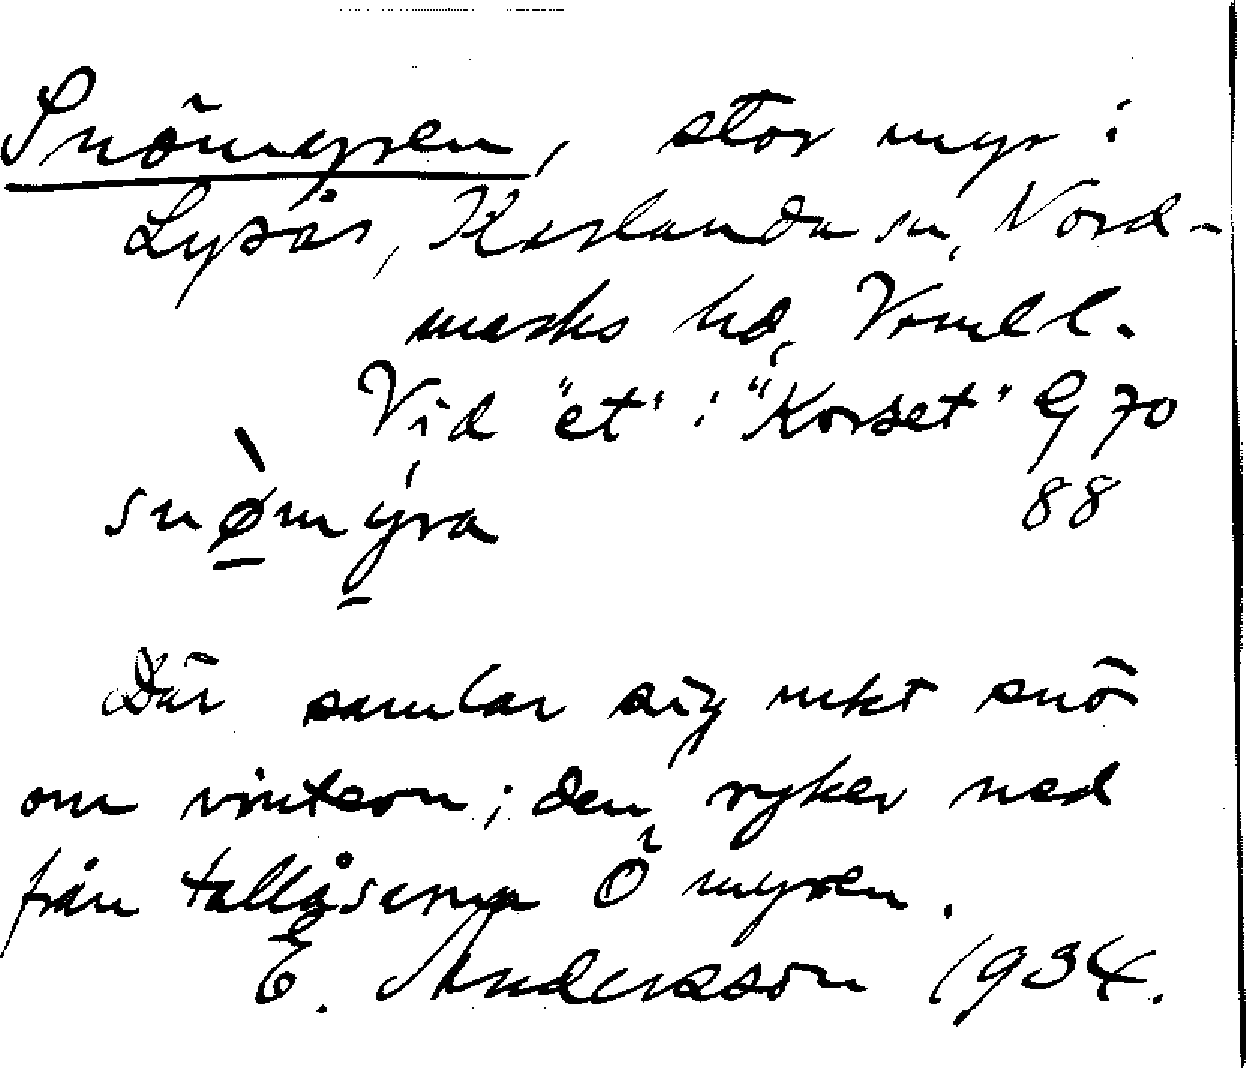 Snömyren, stor myr i
Lysås, Karlanda sn, Nord-
marks hd, Värml l.
Vid "et" i "Korset" G 70
88
snø̀mýra
Där samlar sig mkt snö
om vintern; den ryker ned
från tallåserna Ö myren.
E. Andersson 1934.